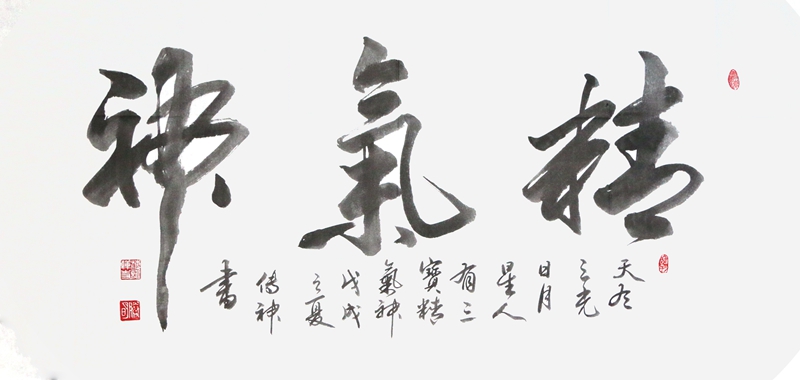 精氣神
天有
三光
日月
星人
有三
寶精
氣神
戊戌
之夏
傳神
書